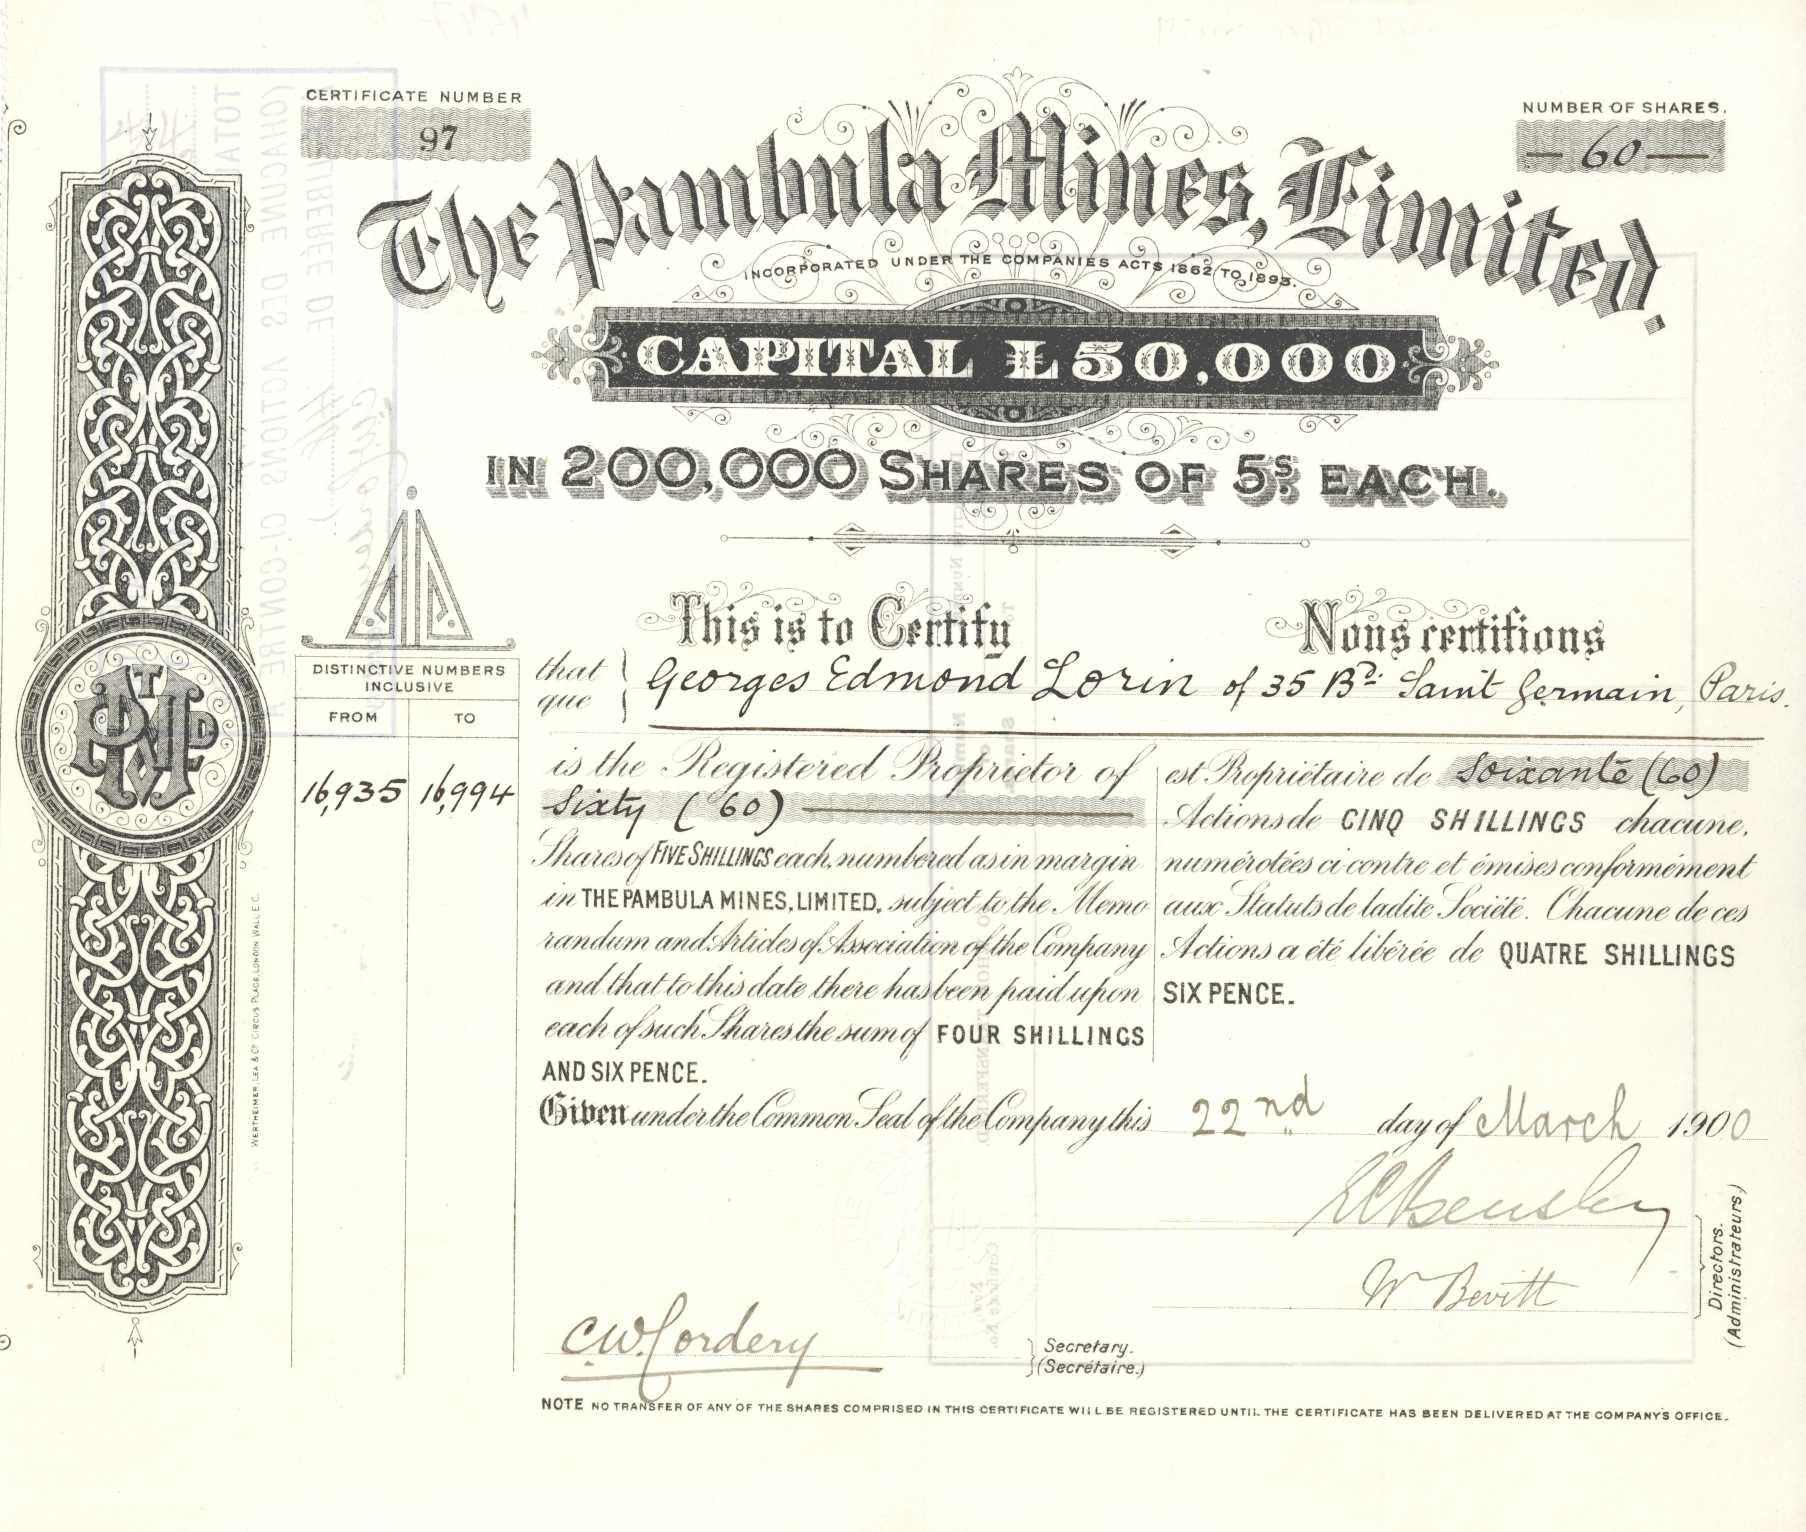 CERTIFICATE NUMBER
97
NUMBER OF SHARES.
— 60 —
The Pambula Mines, Limited.
INCORPORATED UNDER THE COMPANIES ACTS 1862 TO 1893.
CAPITAL £50,000
IN 200,000 SHARES OF 5s. EACH.
This is to Certify
Nous certifions
that
que
Georges Edmond Lorin of 35 Bd. Saint Germain, Paris.
DISTINCTIVE NUMBERS
INCLUSIVE
FROM TO
16,935 16,994
is the Registered Proprietor of
Sixty (60)
Shares of FIVE SHILLINGS each, numbered as in margin
in THE PAMBULA MINES, LIMITED, subject to the Memo
randum and Articles of Association of the Company
and that to this date there has been paid upon
each of such Shares the sum of FOUR SHILLINGS
AND SIX PENCE.
est Propriétaire de Soixante (60)
Actions de CINQ SHILLINGS chacune,
numérotées ci contre et émises conformément
aux Statuts de ladite Société. Chacune de ces
Actions a été libérée de QUATRE SHILLINGS
SIX PENCE.
Given under the Common Seal of the Company this 22nd day of March 1900
W Bevitt
Directors.
(Administrateurs)
C.W. Cordery
Secretary.
(Secrétaire.)
NOTE NO TRANSFER OF ANY OF THE SHARES COMPRISED IN THIS CERTIFICATE WILL BE REGISTERED UNTIL THE CERTIFICATE HAS BEEN DELIVERED AT THE COMPANY'S OFFICE.
WERTHEIMER, LEA & Co. CIRCUS PLACE, LONDON WALL E.C.